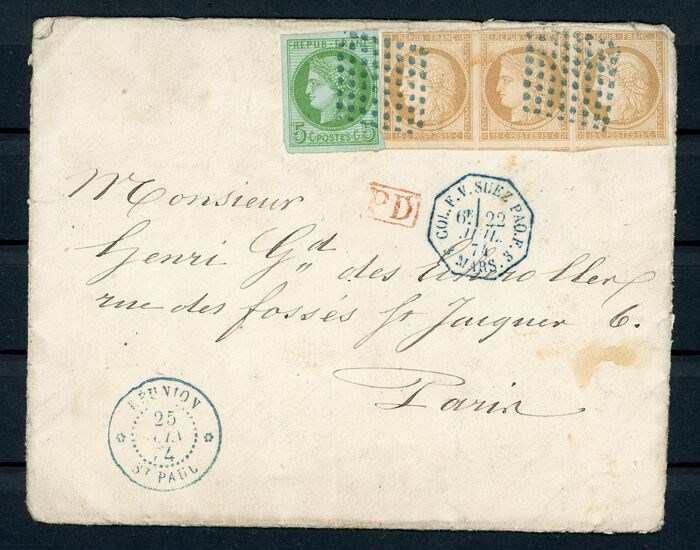 REPUB·FRANC
5 C·POSTES·5
REPUB·FRANC
15·C·POSTES·15·C
REPUB·FRANC
15·C·POSTES·15·C
REPUB·FRANC
15·C·POSTES·15·C
PD
COL. F. V. SUEZ PAQ. F. 3
6E 22
JUIL.
74
MARS.
Monsieur
Henri Gd des
rue des fossés St Jacques 6.
Paris
RÉUNION
25
JUIN
74
ST PAUL